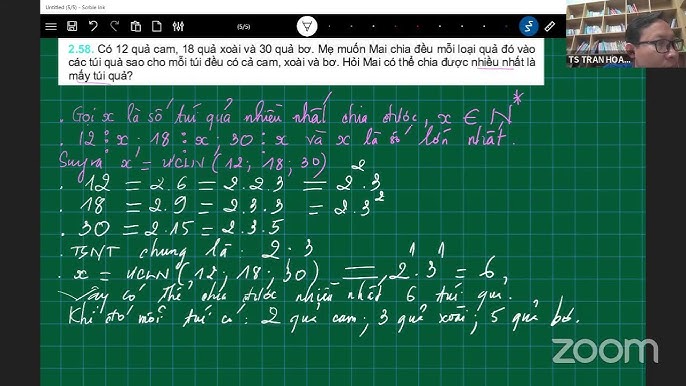 Untitled (5/5) - Sorbie Ink
(5/5)
TS TRAN HOA...
2.58. Có 12 quả cam, 18 quả xoài và 30 quả bơ. Mẹ muốn Mai chia đều mỗi loại quả đó vào
các túi quà sao cho mỗi túi đều có cả cam, xoài và bơ. Hỏi Mai có thể chia được nhiều nhất là
mấy túi quà?
. Gọi x là số túi quà nhiều nhất chia được, x ∈ N*
. 12 ⋮ x ; 18 ⋮ x ; 30 ⋮ x và x là số lớn nhất.
Suy ra x = ƯCLN (12; 18; 30)
. 12 = 2.6 = 2.2.3 = 2².3
. 18 = 2.9 = 2.3.3 = 2.3²
. 30 = 2.15 = 2.3.5
. TSNT chung là : 2 ; 3
. x = ƯCLN (12; 18; 30) = 2¹.3¹ = 6
Vậy có thể chia được nhiều nhất 6 túi quà.
Khi đó mỗi túi có : 2 quả cam ; 3 quả xoài ; 5 quả bơ.
zoom